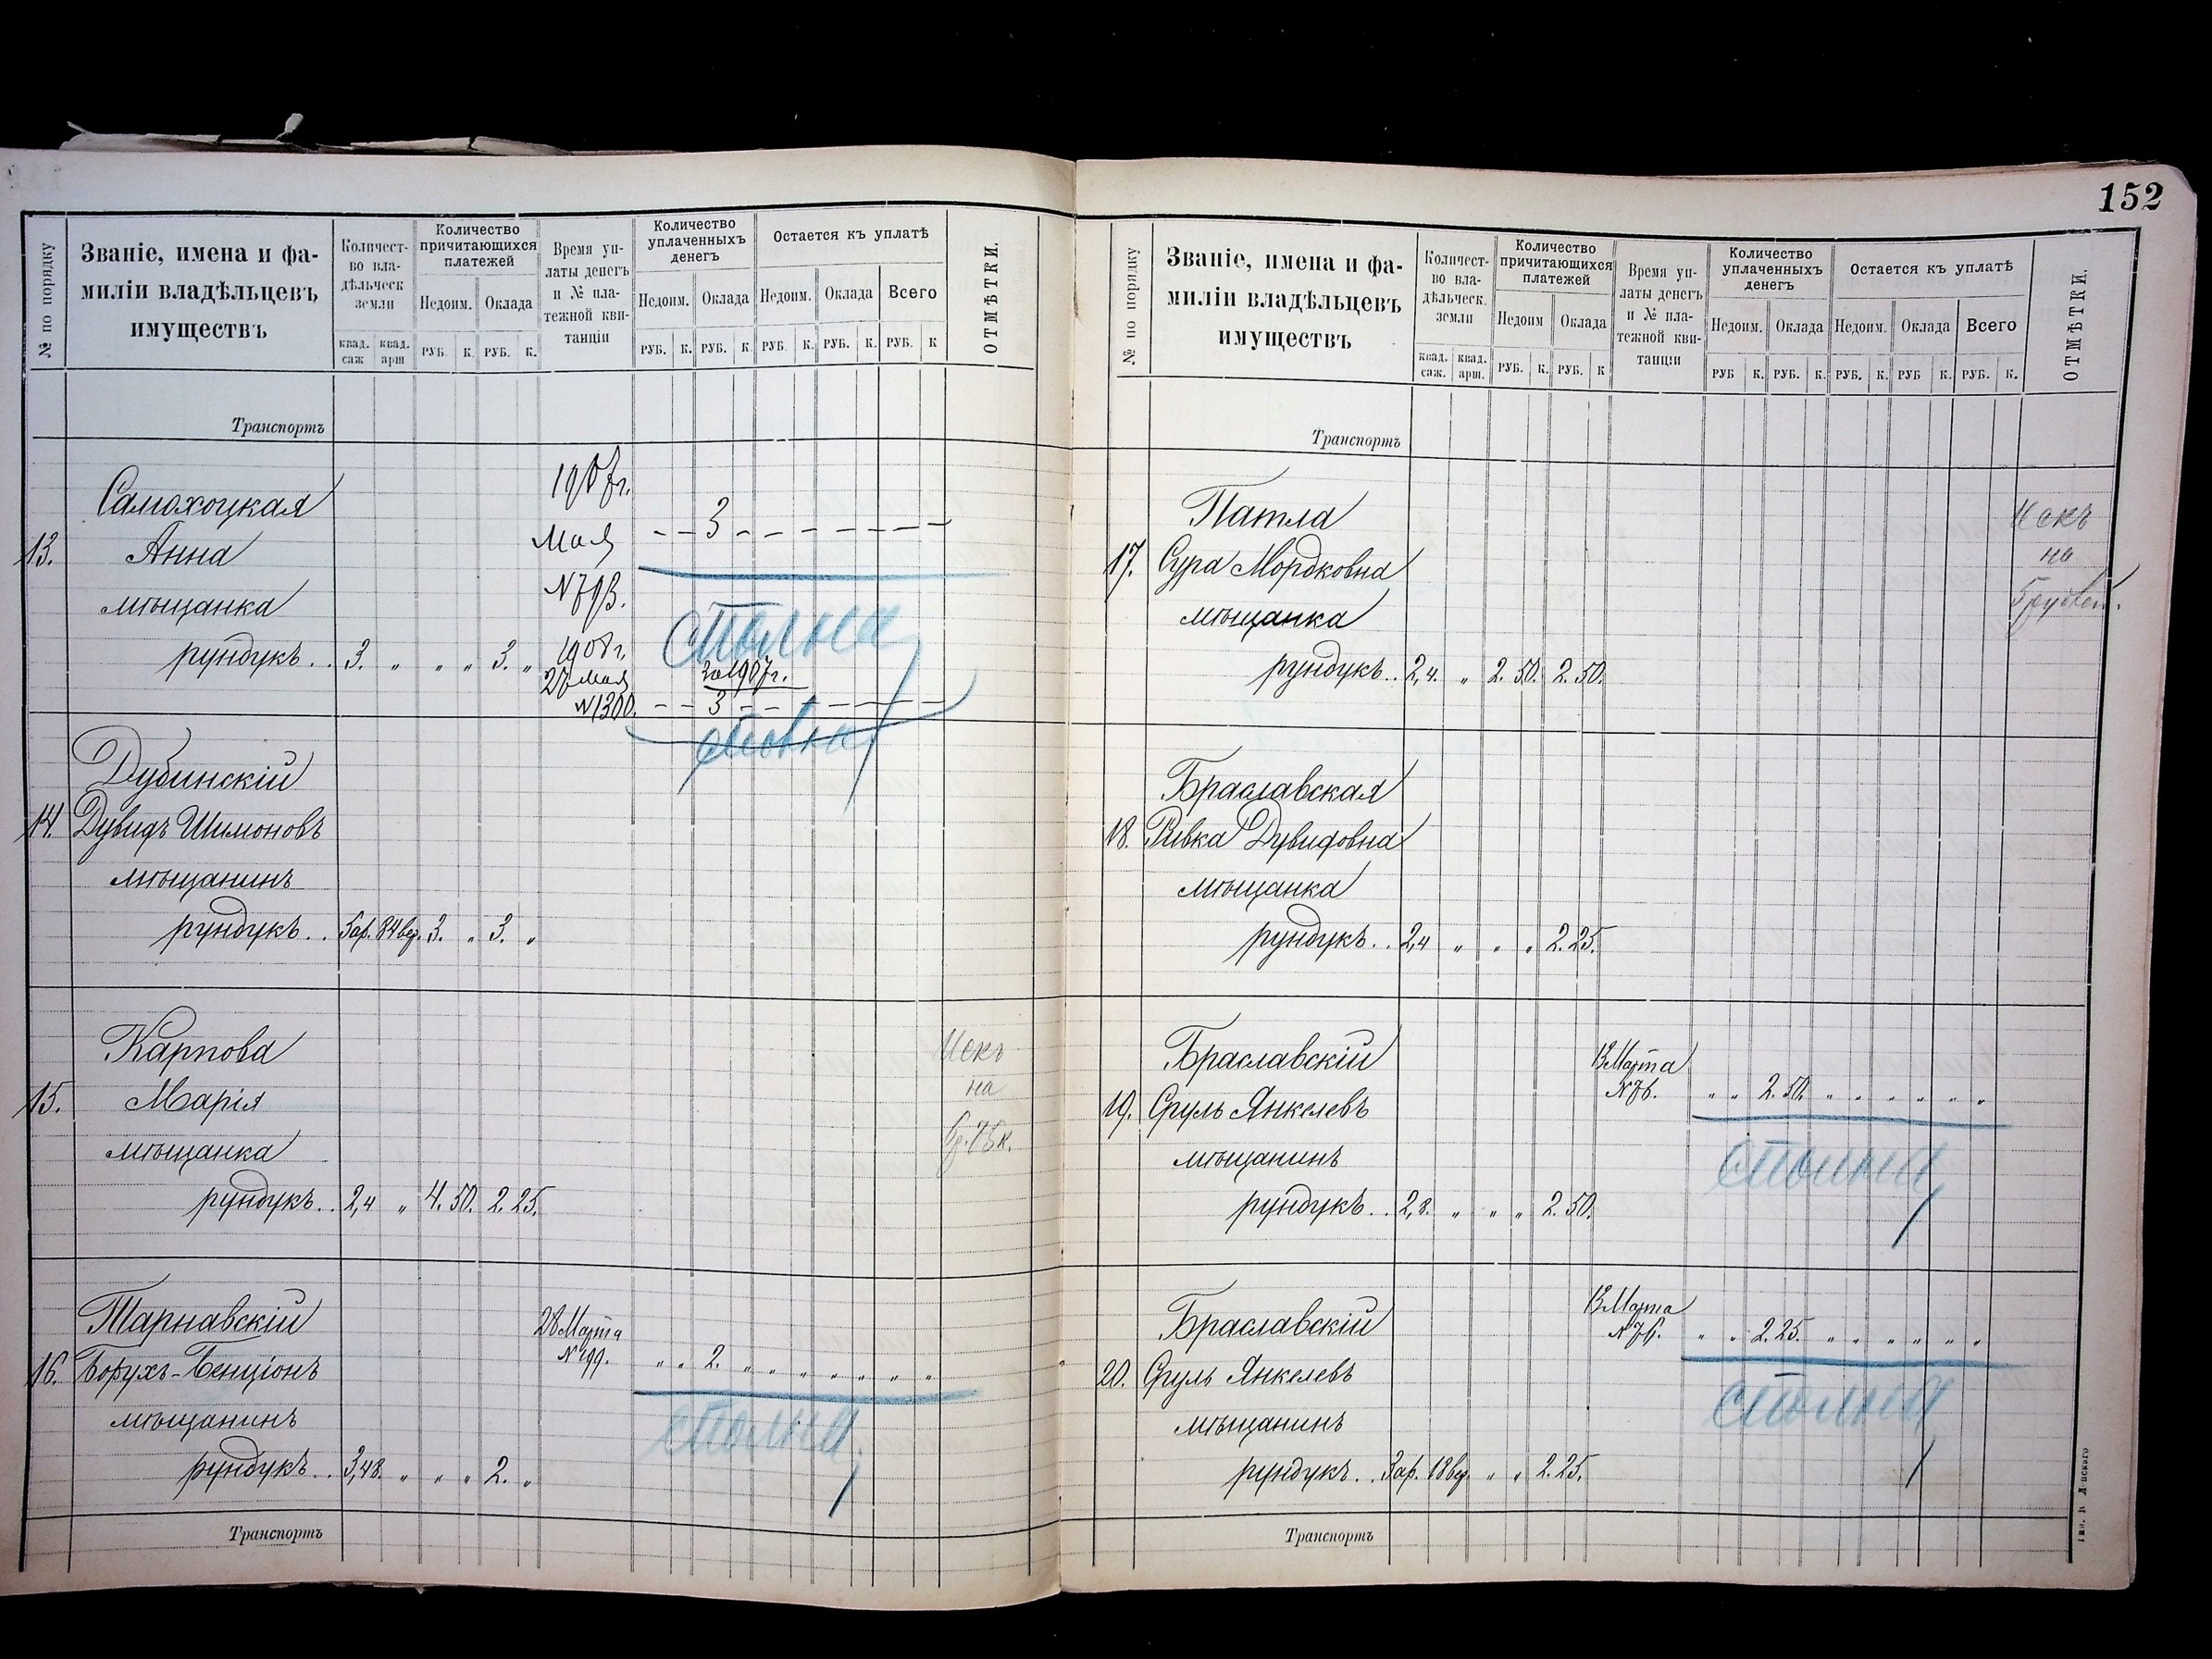 152
№ по порядку
Званіе, имена и фа-
миліи владѣльцевъ
имуществъ
Количест-
во вла-
дѣльческ
земли
квад. саж
квад. арш
Количество
причитающихся
платежей
Недоим.
Оклада
РУБ. К. РУБ. К.
Время уп-
латы денегъ
и № пла-
тежной кви-
танціи
Количество
уплаченныхъ
денегъ
Недоим. Оклада
РУБ. К. РУБ. К
Остается къ уплатѣ
Недоим. Оклада Всего
РУБ. К. РУБ. К. РУБ. К
ОТМѢТКИ.
Транспортъ
Самохоцкая
13. Анна
мѣщанка
рундукъ.. 3. „ „ „ 3. „
1907г.
мая
3
столна
1908г.
27 мая
за 1907г.
№1300.
3
Дубинскій
14. Дувидъ Шимоновъ
мѣщанинъ
рундукъ.. 5ар. 84 вер. 3. „ 3. „
Карпова
15. Марія
мѣщанка
рундукъ.. 2,4 „ 4. 50. 2. 25.
Искъ
на
6р. 75к.
Тарнавскій
16. Борухъ-Бенціонъ
мѣщанинъ
рундукъ.. 3,48. „ „ „ 2. „
28 Марта
№ 199. „ „ 2. „ „ „ „ „ „ „
столна
Транспортъ
№ по порядку
Званіе, имена и фа-
миліи владѣльцевъ
имуществъ
Количест-
во вла-
дѣльческ.
земли
квад. саж.
квад. арш.
Количество
причитающихся
платежей
Недоим Оклада
РУБ. К. РУБ. К
Время уп-
латы денегъ
и № пла-
тежной кви-
танціи
Количество
уплаченныхъ
денегъ
Недоим. Оклада
РУБ К. РУБ. К.
Остается къ уплатѣ
Недоим. Оклада Всего
РУБ. К. РУБ К. РУБ. К.
ОТМѢТКИ.
Транспортъ
Патла
17. Сура Мордковна
мѣщанка
рундукъ.. 2,4. „ 2. 50. 2. 50.
Искъ
на
Браславская
18. Ривка Дувидовна
мѣщанка
рундукъ.. 2,4 „ „ „ 2. 25.
Браславскій
19. Сруль Янкелевъ
мѣщанинъ
рундукъ.. 2,8. „ „ „ 2. 50.
13 Марта
№ 76. „ „ 2. 50. „ „ „ „ „ „
столна
Браславскій
20. Сруль Янкелевъ
мѣщанинъ
рундукъ.. 3ар. 18 вер. „ „ 2. 25.
13 Марта
№ 76. „ „ 2. 25. „ „ „ „ „ „
столна
Транспортъ